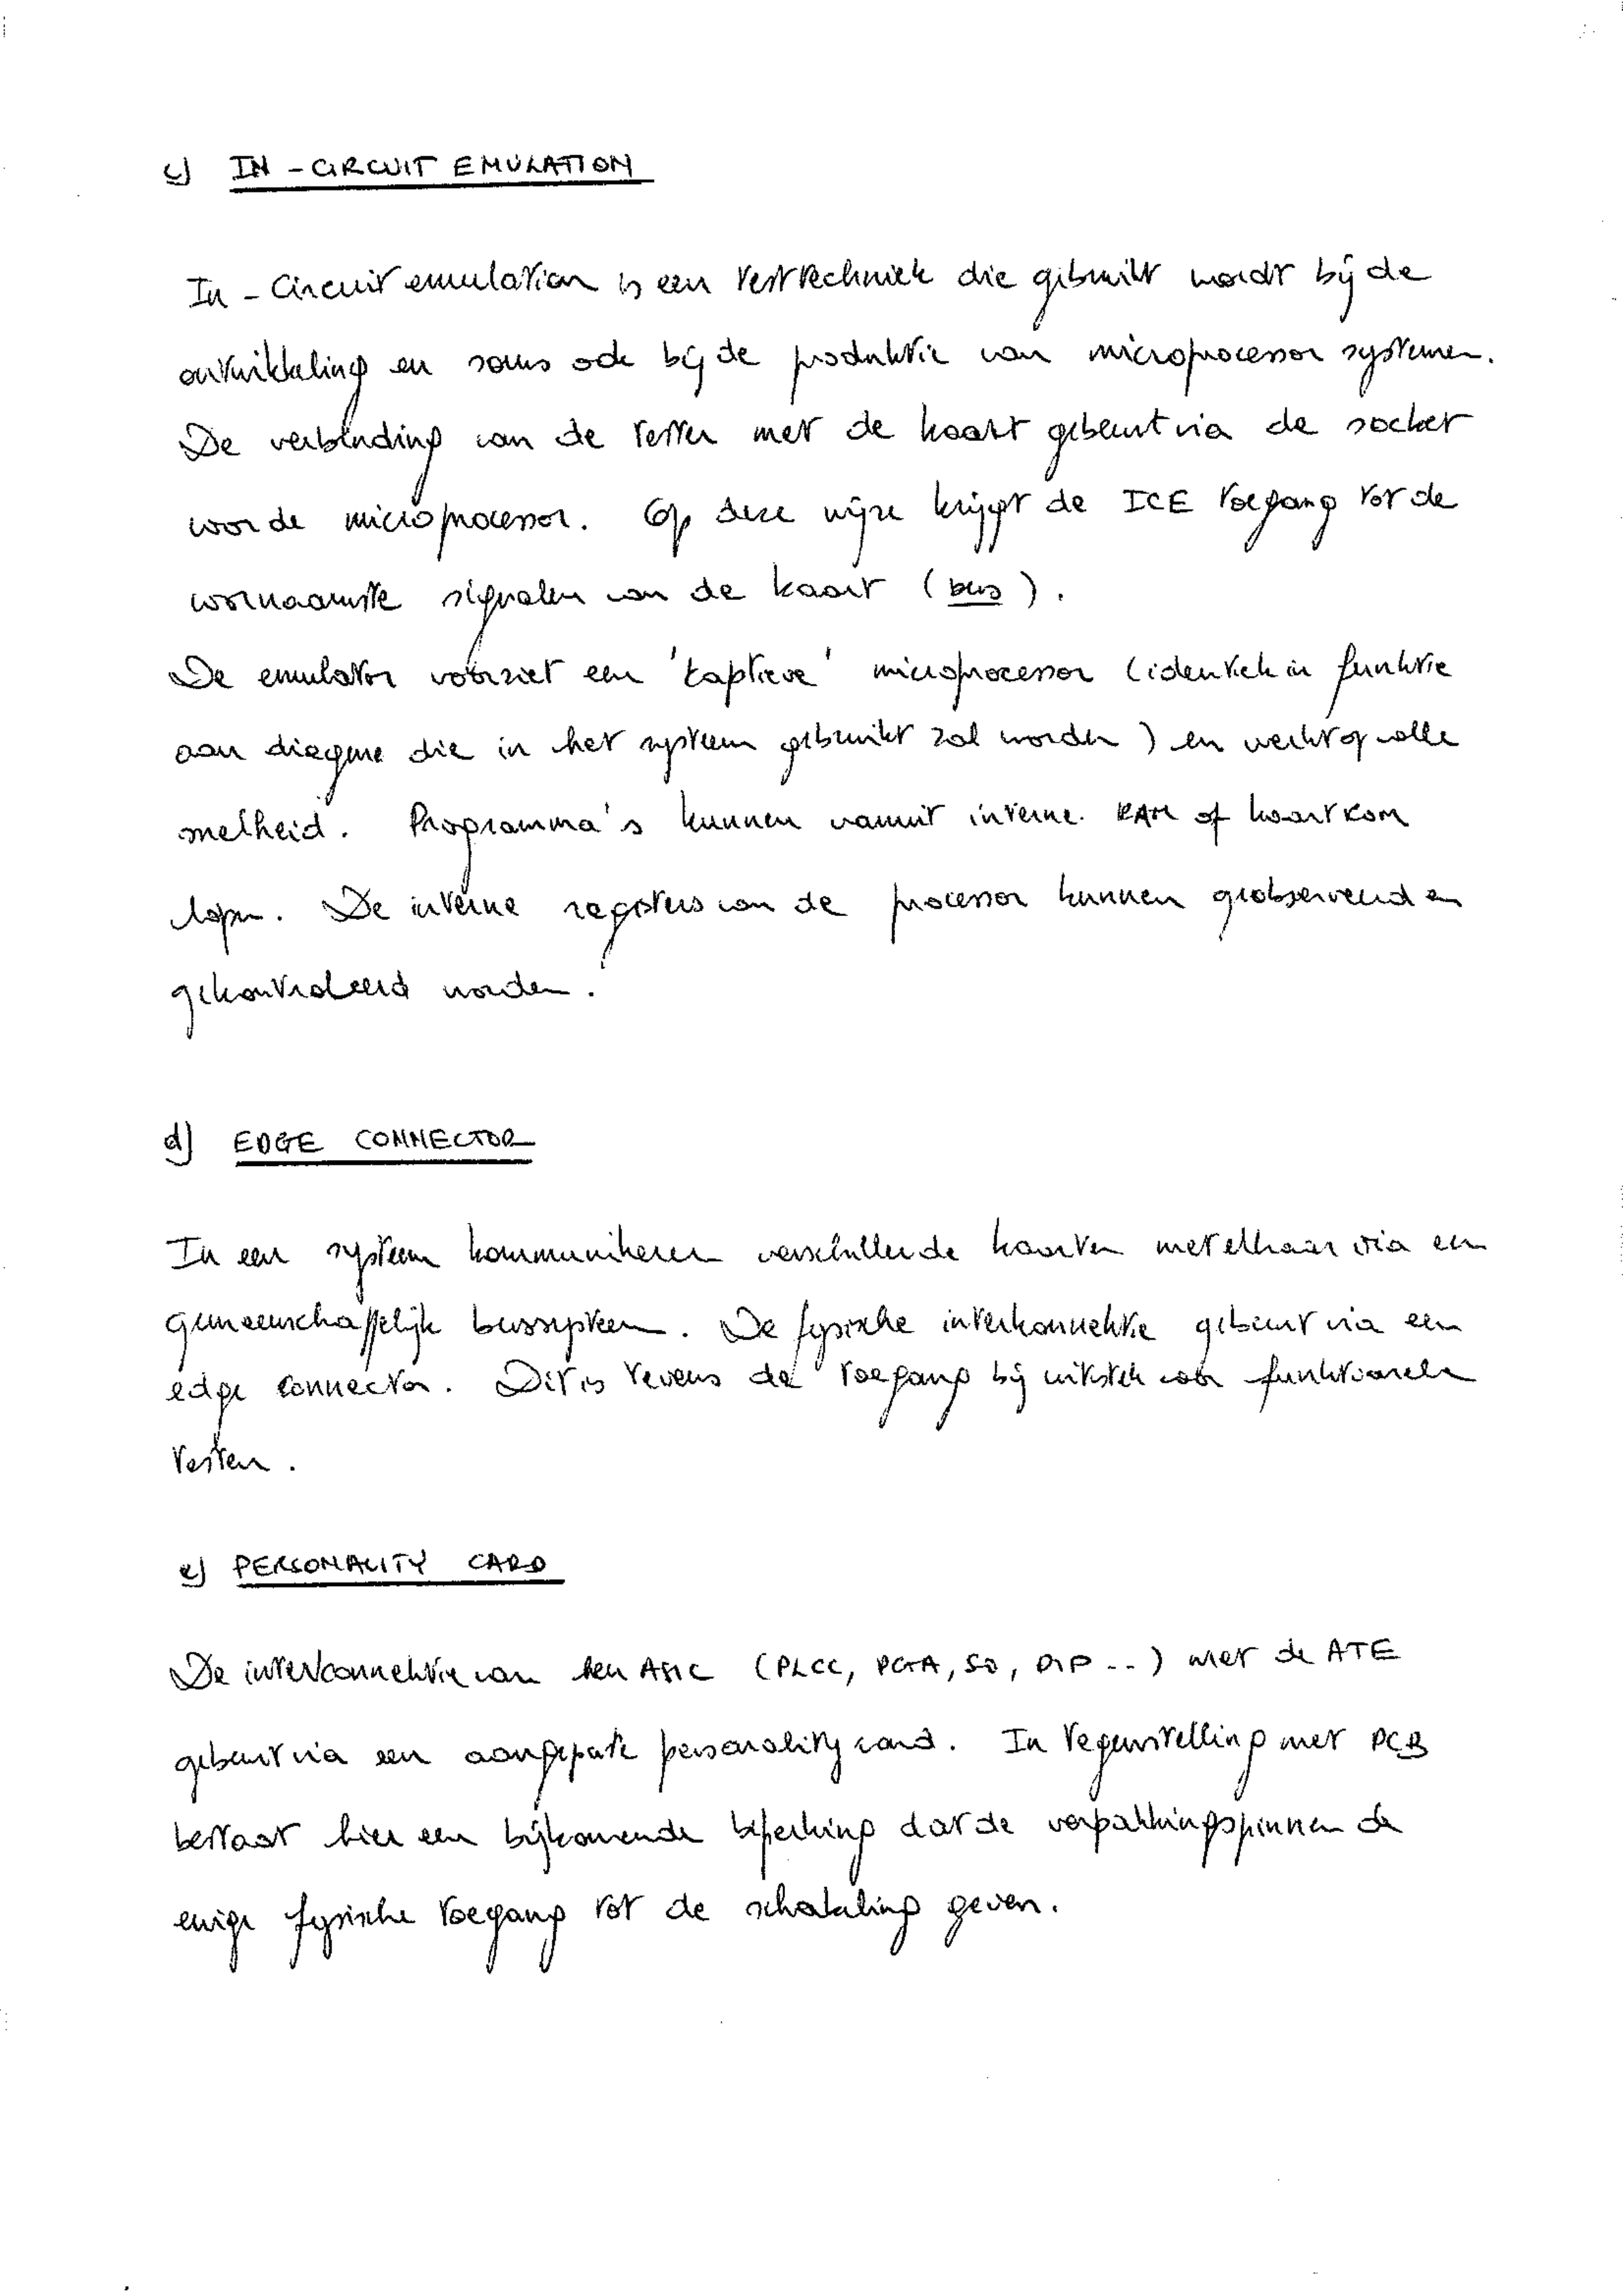 c) IN-CIRCUIT EMULATION
In-Circuit emulation is een testtechniek die gebruikt wordt bij de
ontwikkeling en soms ook bij de produktie van microprocessor systemen.
De verbinding van de tester met de kaart gebeurt via de socket
voor de microprocessor. Op deze wijze krijgt de ICE toegang tot de
voornaamste signalen van de kaart (bus).
De emulator voorziet een 'captieve' microprocessor (identiek in funktie
aan diegene die in het systeem gebruikt zal worden) en werkt op volle
snelheid. Programma's kunnen vanuit interne RAM of kaart ROM
lopen. De interne registers van de processor kunnen geobserveerd en
gekontroleerd worden.
d) EDGE CONNECTOR
In een systeem kommuniceren verschillende kaarten met elkaar via een
gemeenschappelijk bussysteem. De fysische interkonnektie gebeurt via een
edge connector. Dit is tevens de toegang bij uitstek voor funktionele
testen.
e) PERSONALITY CARD
De interkonnektie van een ASIC (PLCC, PGA, SO, DIP ..) met de ATE
gebeurt via een aangepaste personality card. In tegenstelling met PCB
bestaat hier een bijkomende beperking dat de verpakkingspinnen de
enige fysische toegang tot de schakeling geven.